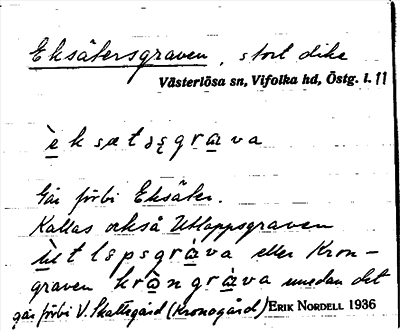 Eksätersgraven, stort dike
Västerlösa sn, Vifolka hd, Östg. l. 11
èksætəʂgrɑ̀va
Går förbi Eksäter.
Kallas också Utloppsgraven
ùtlɵpsgrɑ̀va eller Kron-
graven krɑ̀ngrɑ̀va medan det
går förbi V. Skattegård (Kronogård) ERIK NORDELL 1936